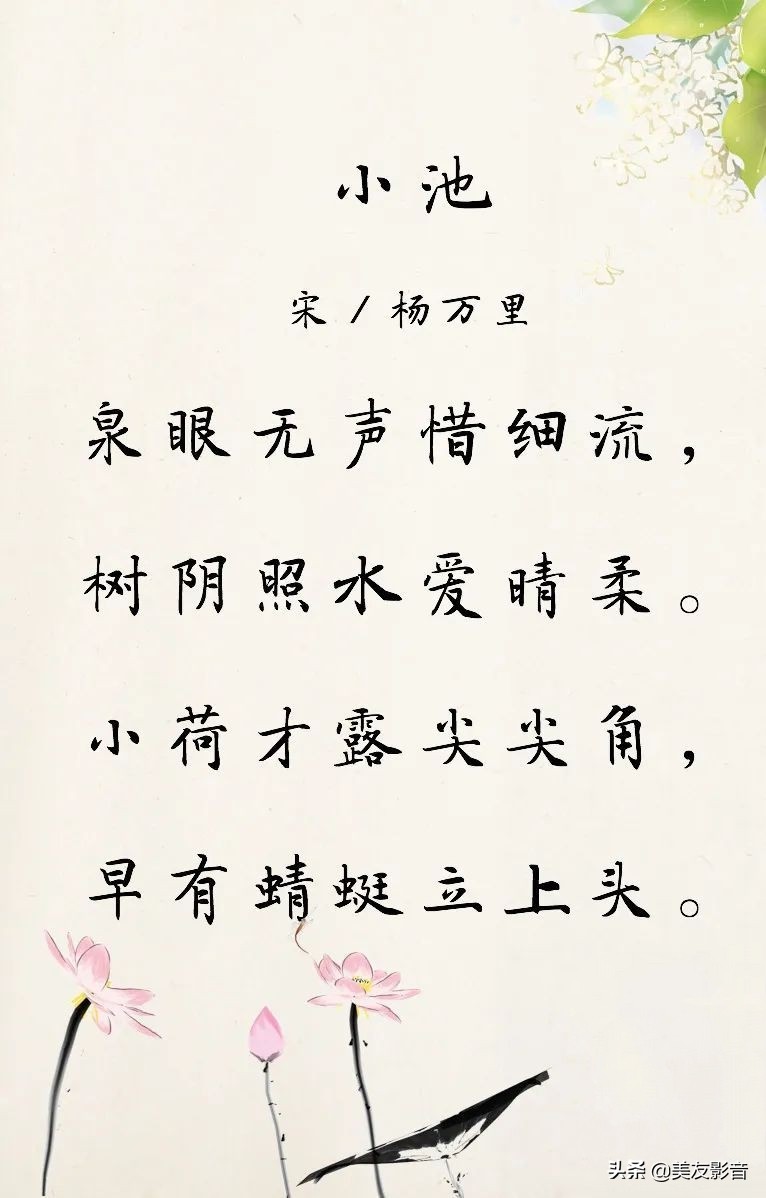 小池
宋/杨万里
泉眼无声惜细流，
树阴照水爱晴柔。
小荷才露尖尖角，
早有蜻蜓立上头。
头条 @美友影音